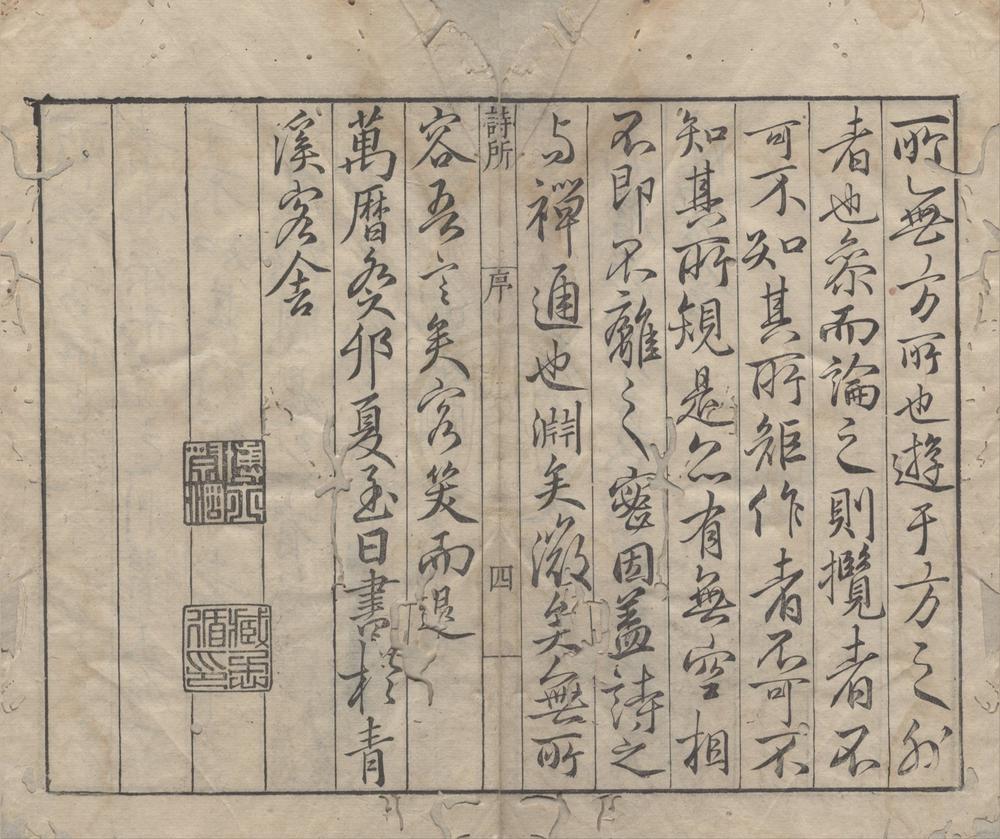 所無方所也遊于方之外
者也叅而論之則攬者不
可不知其所矩作者不可不
知其所規是亦有無空相
不即不離之密因盖詩之
与禪通也淵矣微矣無所
詩所
序
四
容吾言矣客笑而退
萬曆癸卯夏至日書於青
溪客舍
臧懋循印